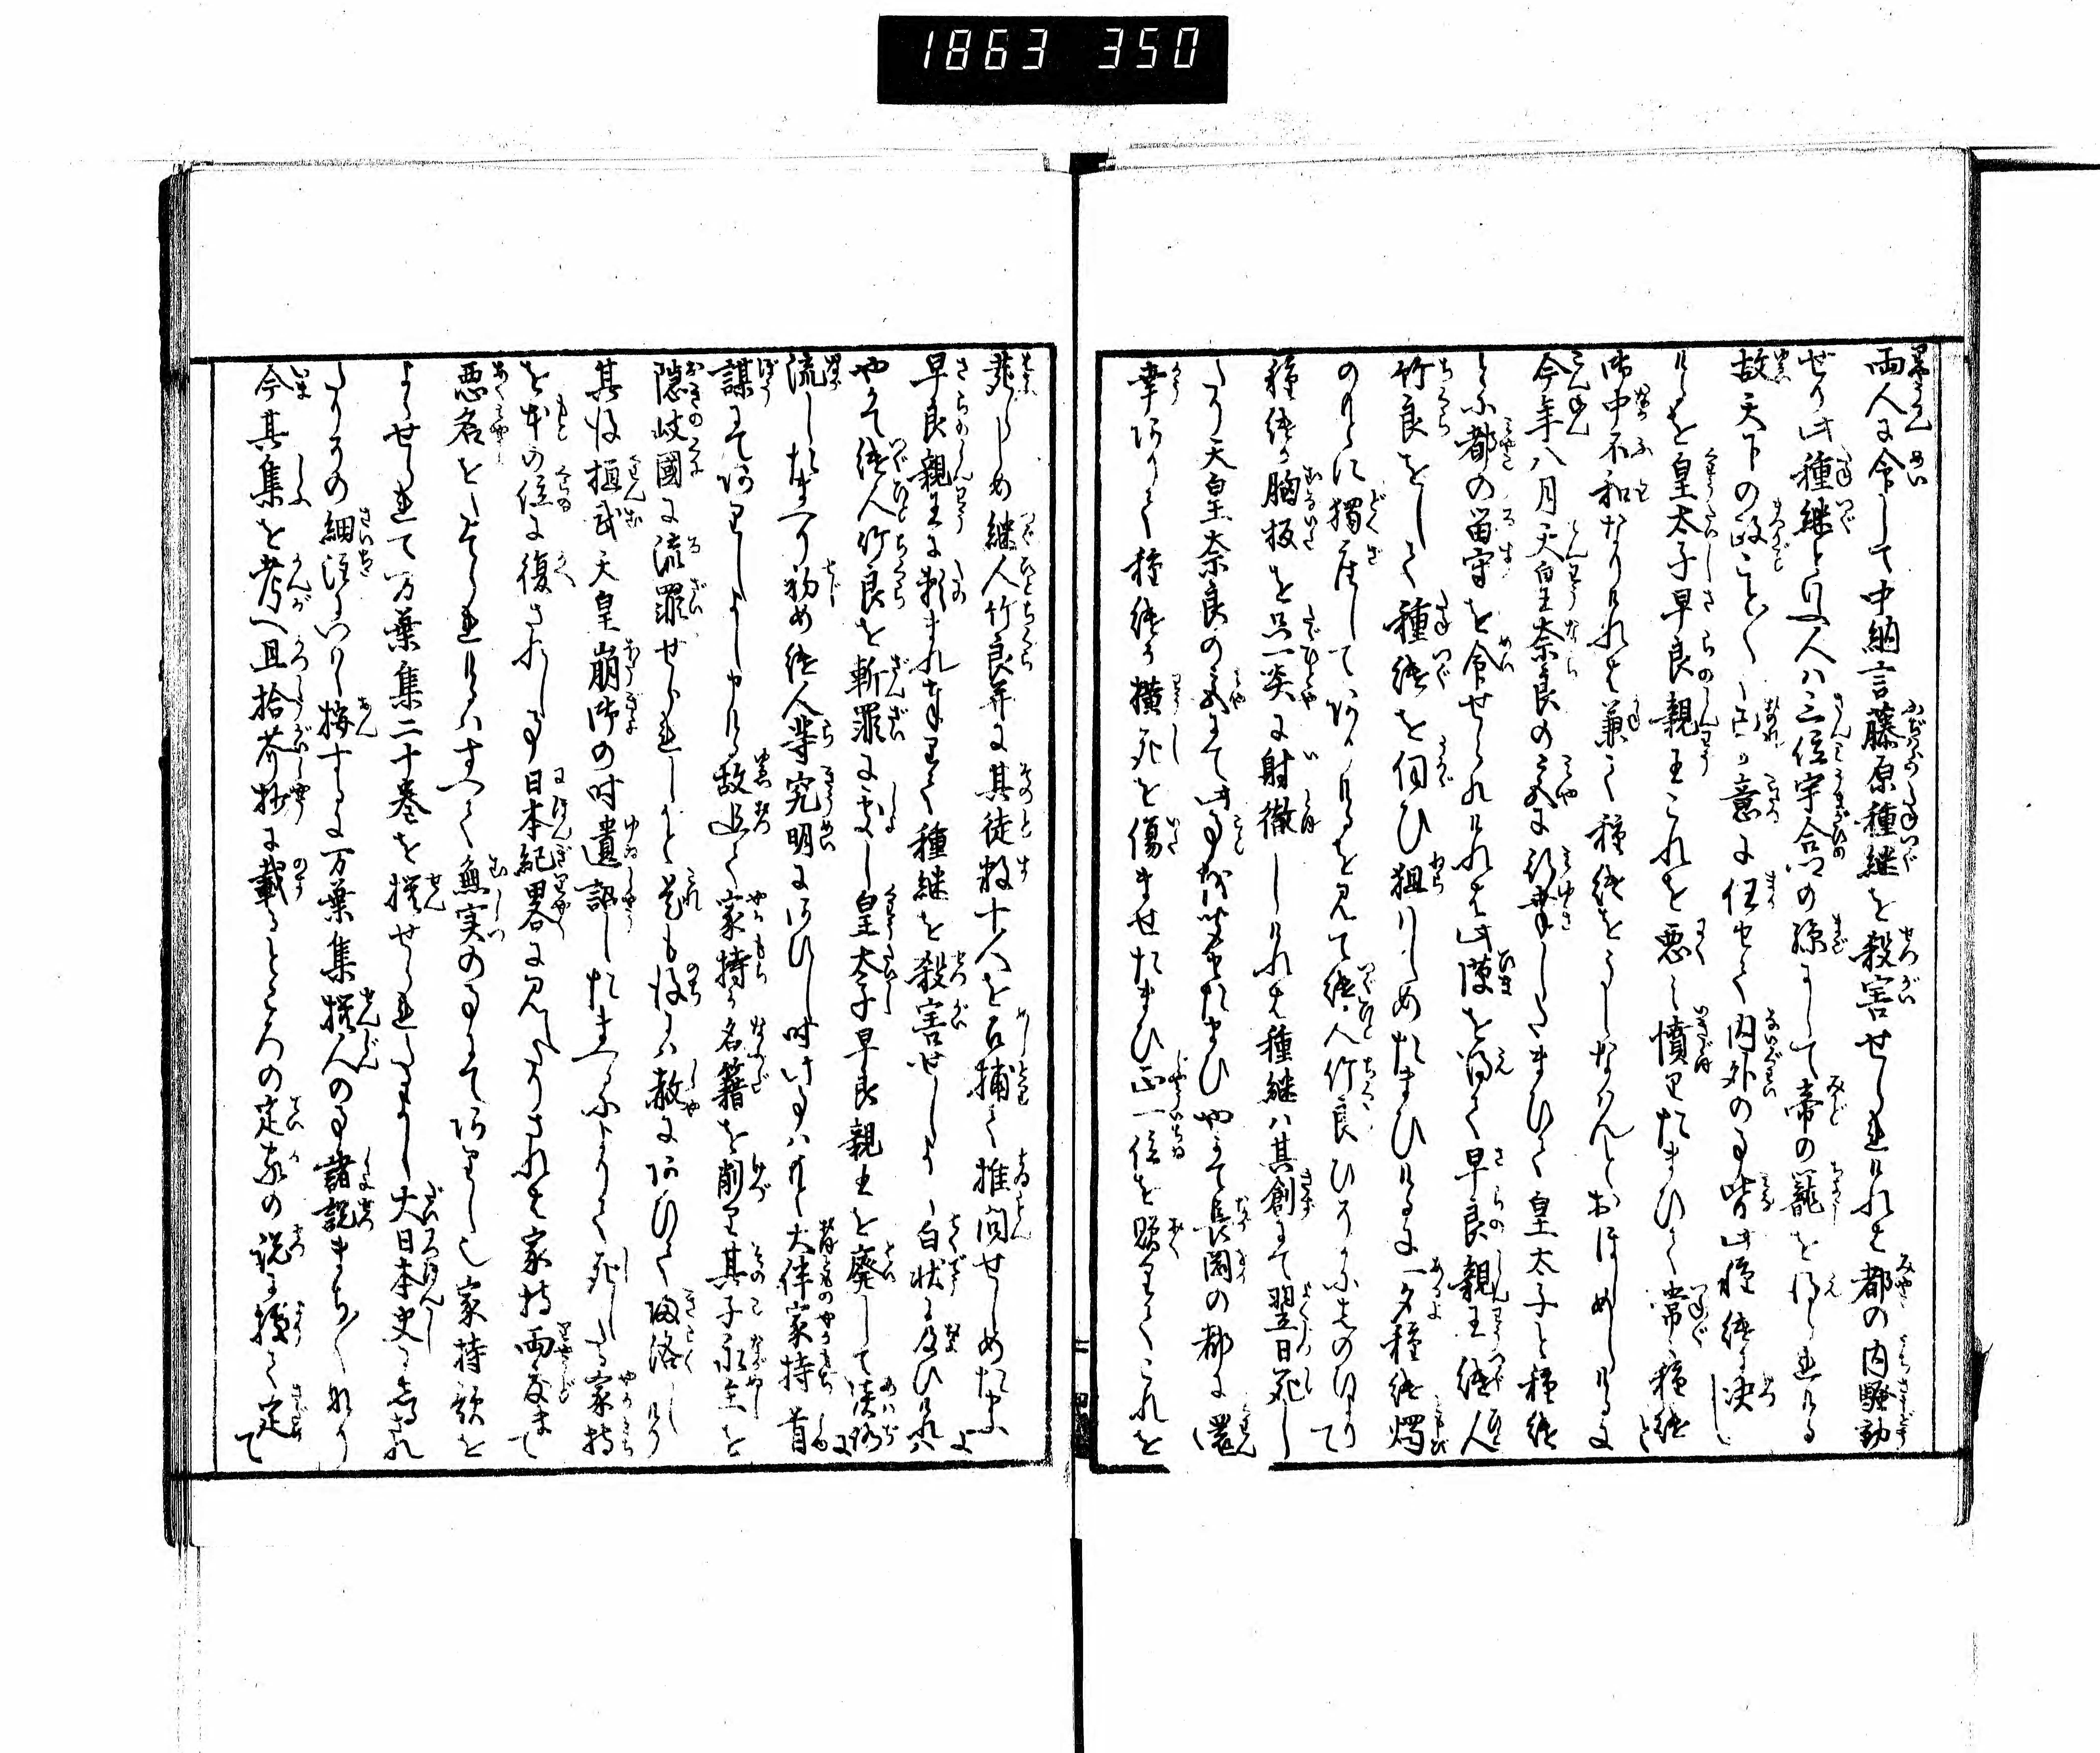 1863 350
両人に令して中納言藤原種継を殺害せられければ都の内騒動
せり此種継と申人ハ三位宇合の孫にして帝の寵を得られける
故天下の政こと〴〵く己が意に任せて内外の事皆此種継に決し
けるを皇太子早良親王これを悪み憤りたまひて常に種継と
御中不和なりければ兼て種継をうしなんとおぼしめしけるに
今年八月天皇奈良の宮に行幸したまひて皇太子と種継
とに都の留守を令せられければ此隙を得て早良親王継人
竹良をして種継を伺ひ狙りしめたまひけるに一夕種継燭
のもとに獨座して居けるを見て継人竹良ひそかにしのひより
種継が胸板を只一矢に射徹しければ種継ハ其創にて翌日死し
たり天皇奈良の宮にて此事を聞せたまひやがて長岡の都に還
幸ありて種継が横死を傷ませたまひ正一位を贈りてこれを
葬らしめ継人竹良并に其徒数十人を召捕て推問せしめたまふに
早良親王に頼まれまゐりて種継を殺害せしよし白状に及ひけれハ
やがて継人竹良を斬罪に処し皇太子早良親王を廃して淡路に
流したまへり初め継人等究明にあひし時此事ハもと大伴家持首
謀にてありしよし申ける故追て家持が名籍を削り其子永主を
隠岐國に流罪せられしかど是も後にハ赦にあひて帰洛しけり
其後桓武天皇崩御の時遺詔したまふによりて死したる家持
を本の位に復されし事日本紀畧に見へたりされば家持両度まで
悪名をとなへられけるハすべて無実の事にてありしや家持歌を
よくせられて万葉集二十巻を撰せられたるよし大日本史に志され
たりその細注にいハく按するに万葉集撰人の事諸説まち〳〵なり
今其集を考へ且拾芥抄に載るところの定家の説に據て定て